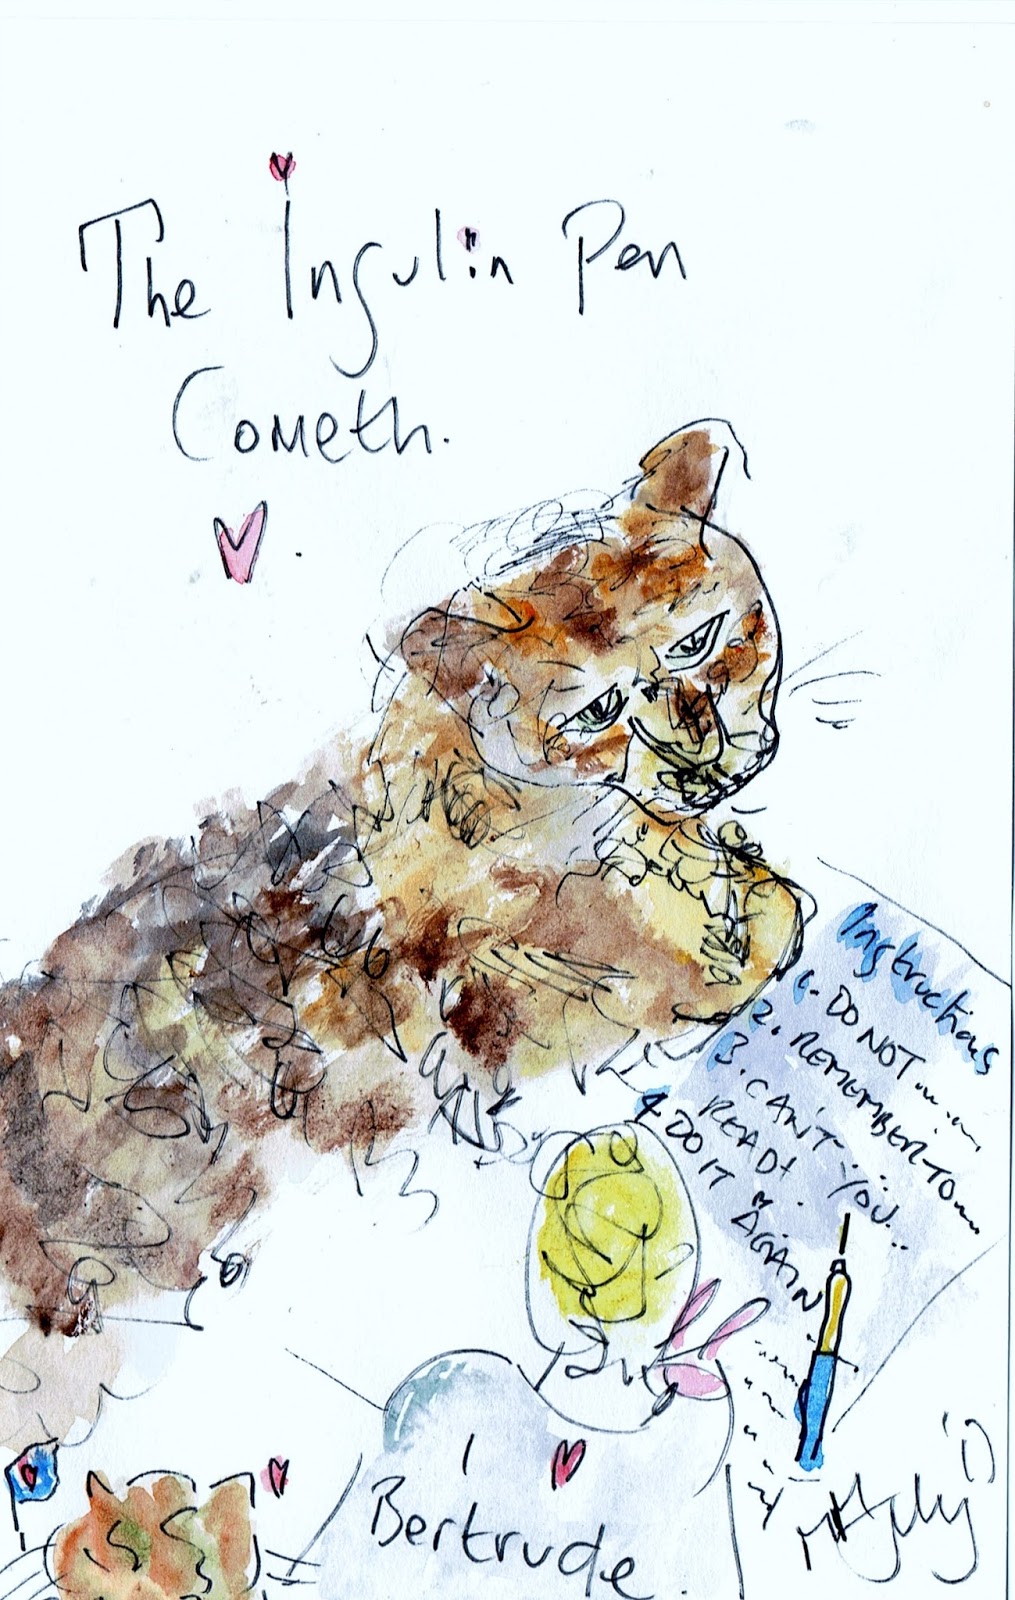 The Insulin Pen
Cometh.
Instructions
1. DO NOT......
2. REMEMBER TO....
3. CAN'T YOU...
READ!
4 DO IT
AGAIN
I
Bertrude.